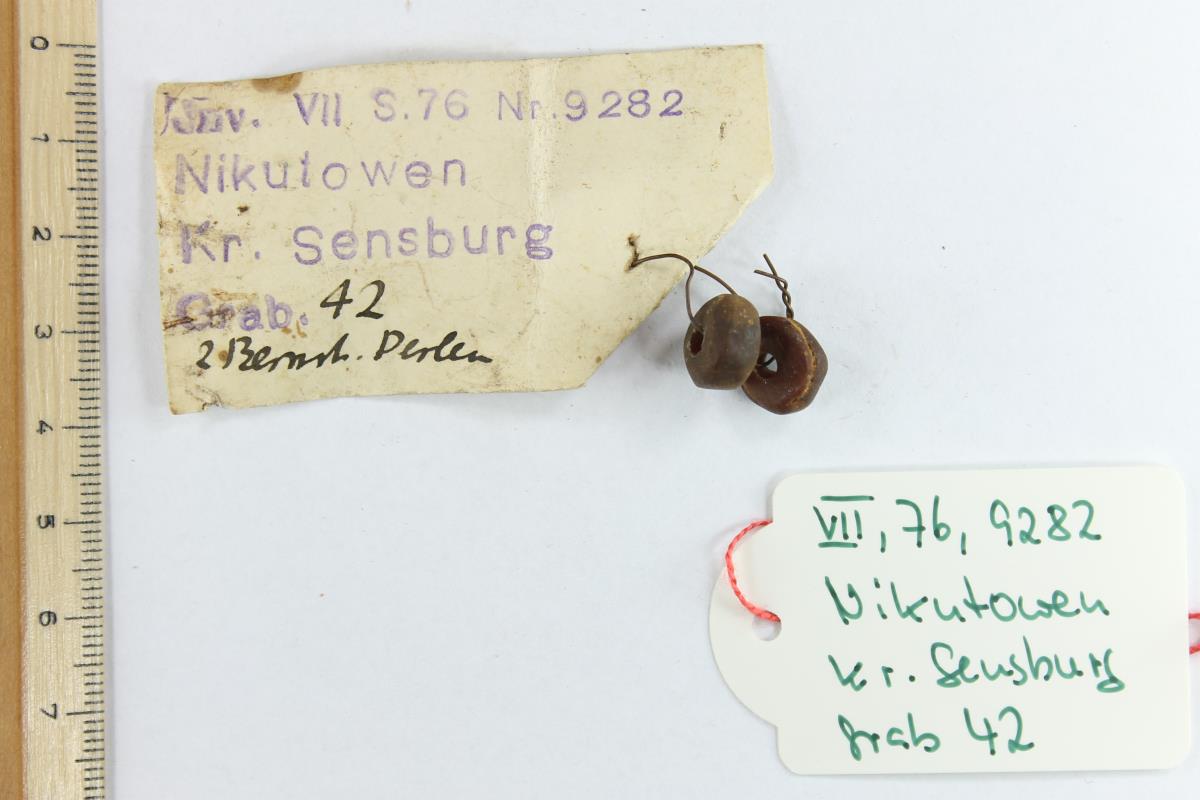 Inv. VII S.76 Nr.9282
Nikutowen
Kr. Sensburg
Grab. 42
2 Bernst. Perlen
VII, 76, 9282
Nikutowen
Kr. Sensburg
Grab 42
0
1
2
3
4
5
6
7